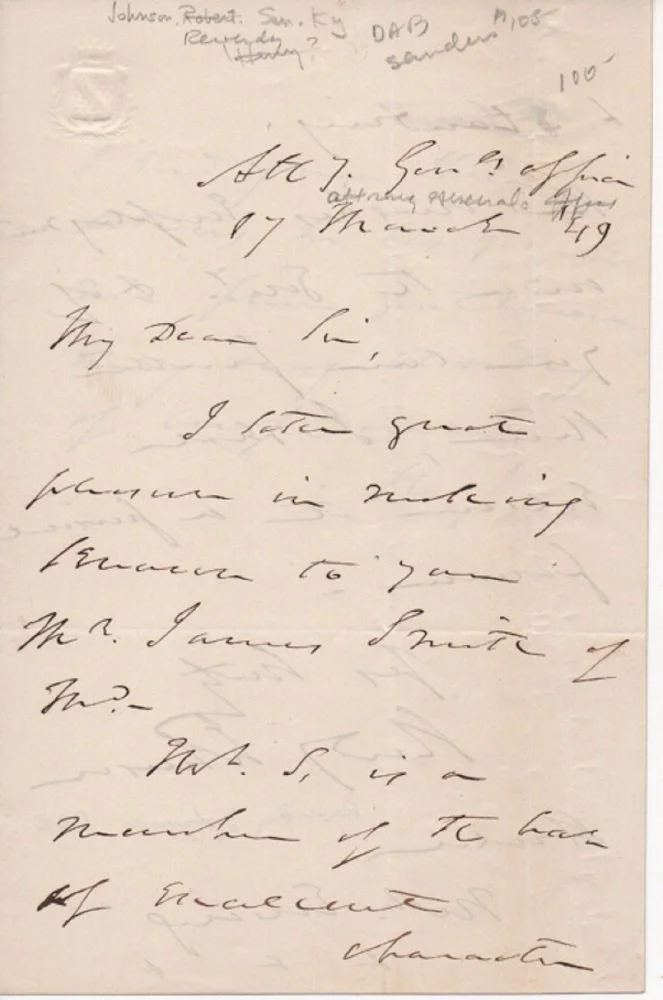 Johnson, Robert. Sen. Ky
Reverdy
Henry?
DAB
Sanders
100-
Atty. Genls office
attorney Generals office
17 March '49
My Dear Sir,
I take great
pleasure in making
known to you
Mr. James Smith of
Md-
Mr. S. is a
member of the bar
of excellent
character